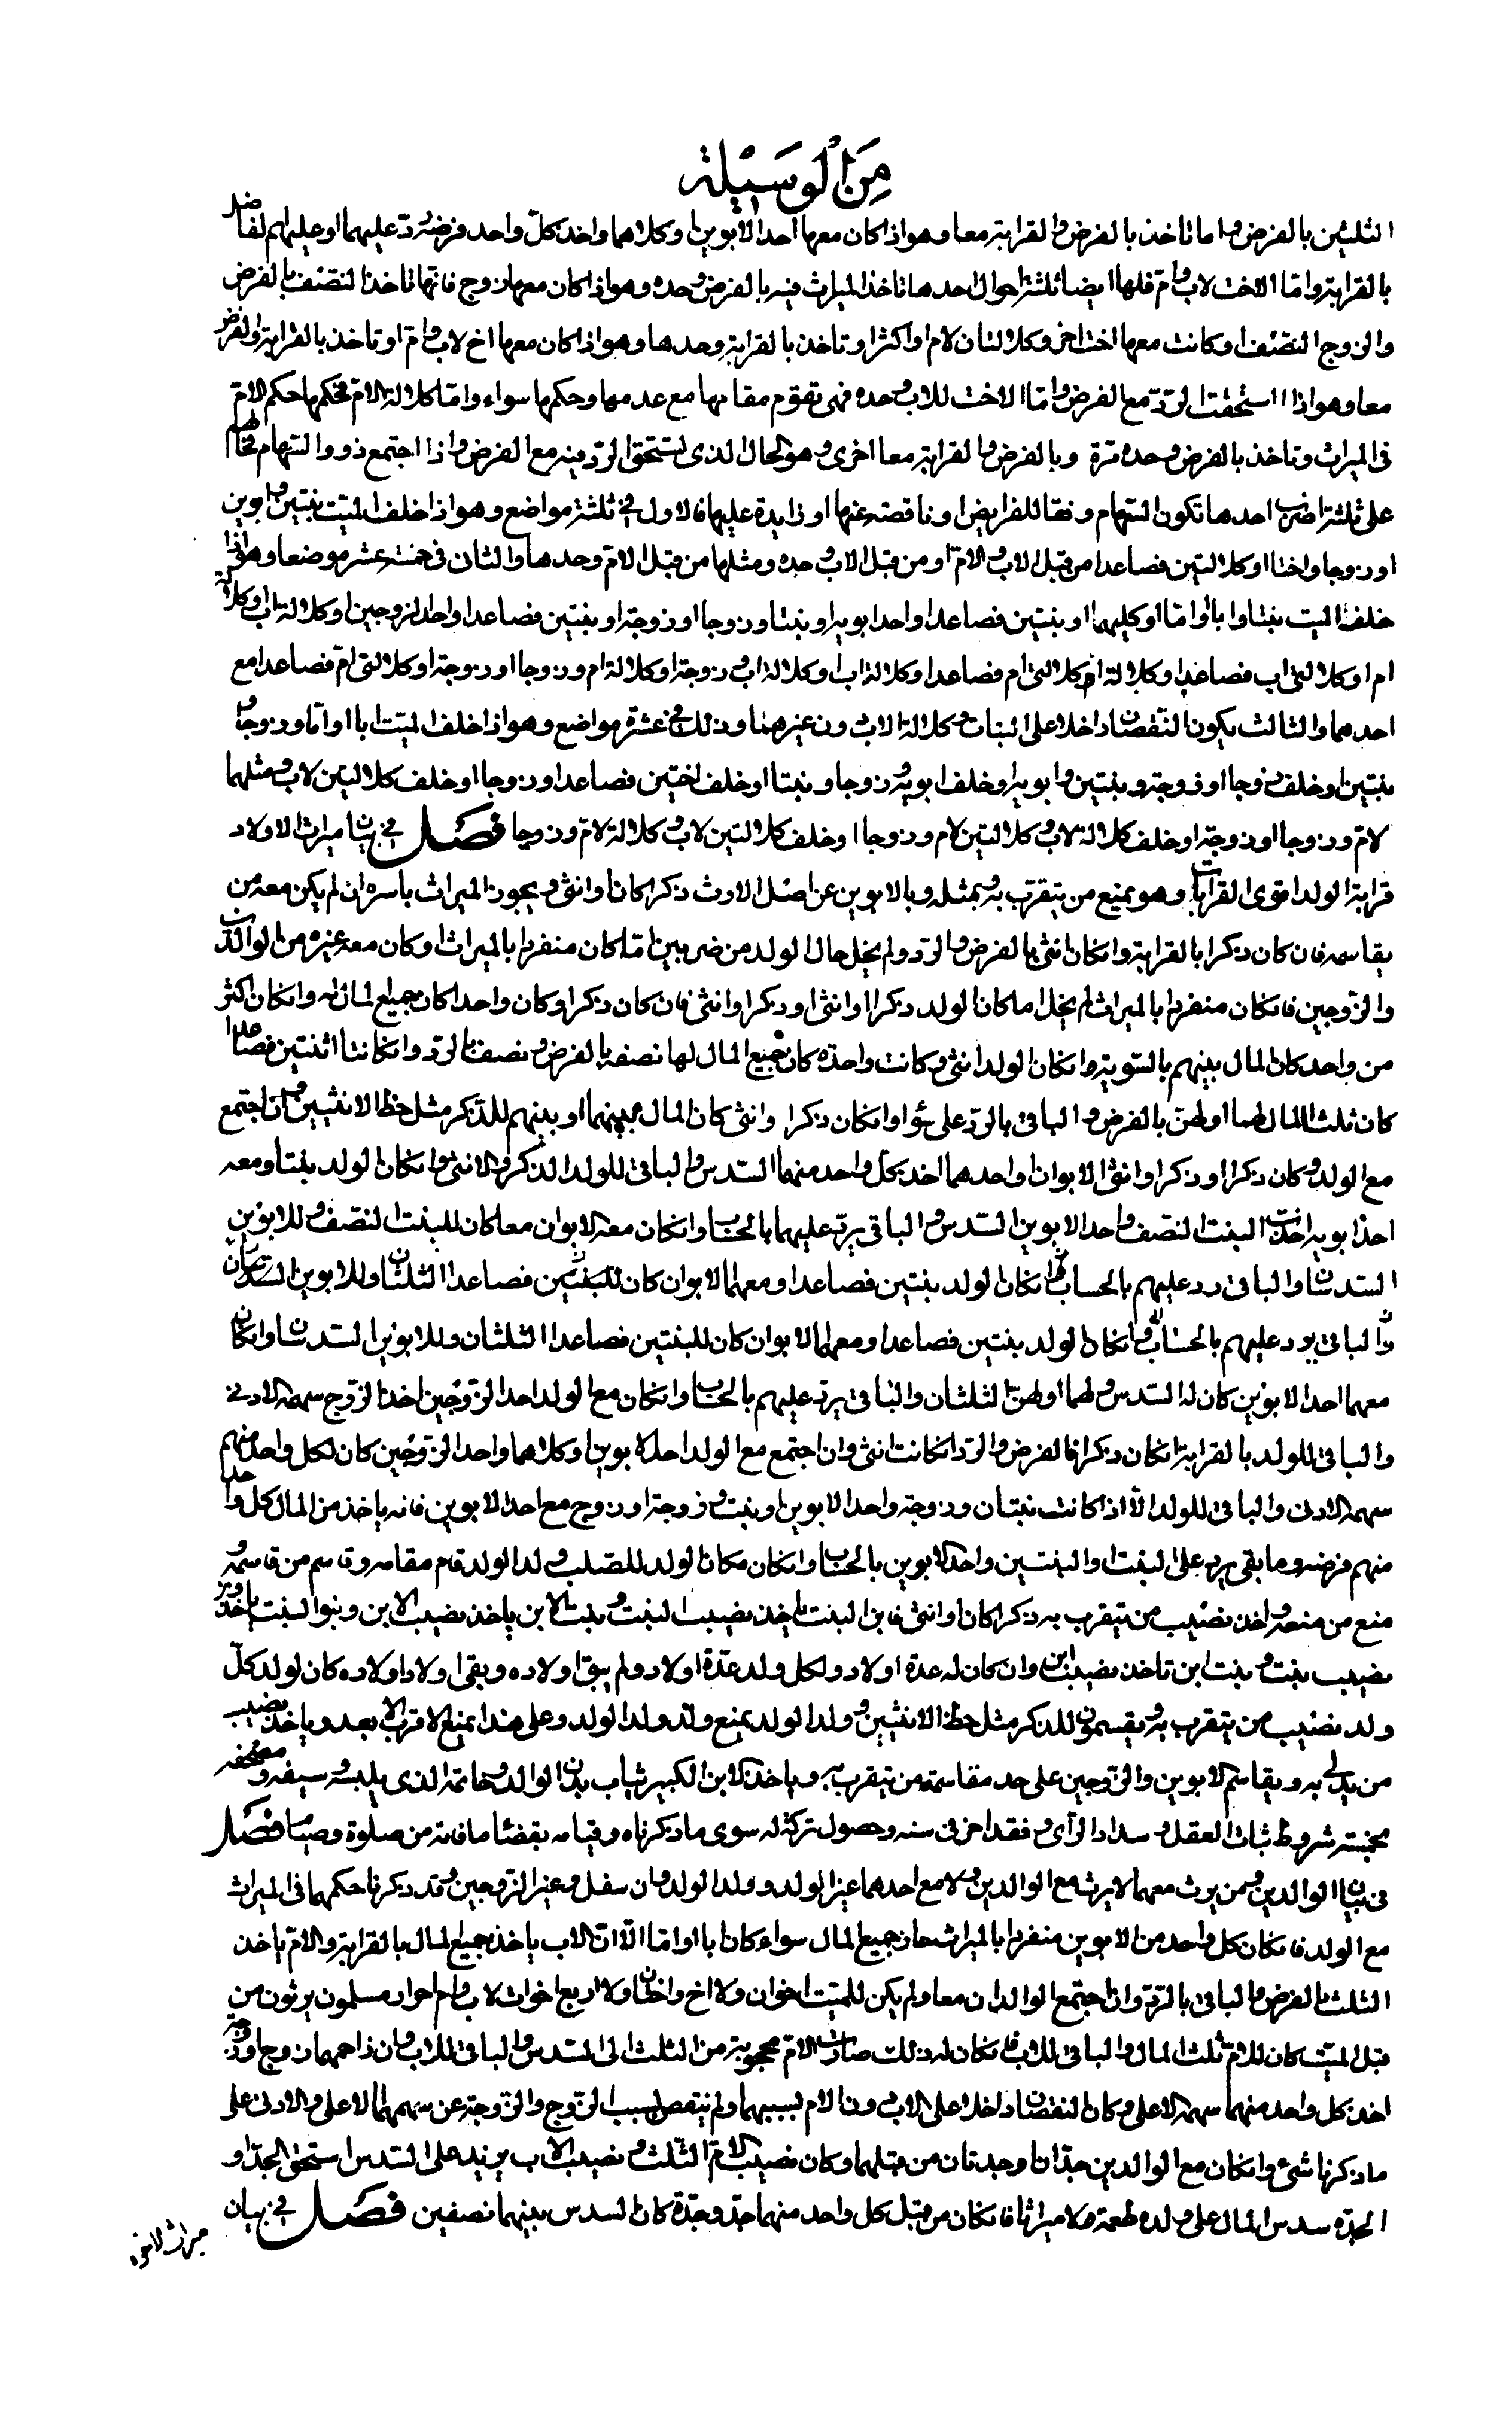 مِنَ الوَسِيْلة
الثلثين بالفرض واما تاخذ بالفرض والقرابة معا وهو اذا كان معها احد الابوين او كلاهما واخذ كل واحد فرضه ورد عليهما او عليهم الفاضل
بالقرابة واما الاخت لاب وام فلها ايضا ثلثة احوال احدها تاخذ الميراث فيه بالفرض وحده وهو اذا كان معها زوج فانها تاخذ النصف بالفرض
والزوج النصف او كانت معها اخت اخرى وكلالتان لام او اكثر او تاخذ بالقرابة وحدها وهو اذا كان معها اخ لاب وام او تاخذ بالقرابة والفرض
معا وهو اذا استحقت الرد مع الفرض واما الاخت للاب وحده فهى تقوم مقامها مع عدمها وحكمها سواء واما كلالة الام فحكمها حكم الام
فى الميراث وتاخذ بالفرض وحده مرة وبالفرض والقرابة معا اخرى وهو الحال الذى يستحق الرد فيه مع الفرض واذا اجتمع ذوو السهام
على ثلثة اضرب احدها تكون السهام وفقا للفرايض او ناقصة عنها او زايدة عليها فالاول فى ثلثة مواضع وهو اذا خلف الميت بنتين وابوين
او زوجا واختا او كلالتين فصاعدا من قبل الاب والام او من قبل الاب وحده ومثلها من قبل الام وحدها والثانى فى خمسة عشر موضعا وهو اذا
خلف الميت بنتا وابا او اما او كليهما او بنتين فصاعدا واحد ابويه او بنتا وزوجا او زوجة او بنتين فصاعدا واحد الزوجين او كلالة اب وكلالة
ام او كلالتى اب فصاعدا وكلالة ام او كلالتى ام فصاعدا وكلالة اب او كلالة اب وزوجة او كلالة ام وزوجا او زوجة او كلالتى ام فصاعدا مع
احدهما والثالث يكون النقصان داخلا على البنات وكلالة الاب دون غيرهما وذلك فى عشرة مواضع وهو اذا خلف الميت ابا او اما وزوجا و
بنتين او خلف زوجا او زوجة وبنتين وابويه او خلف ابويه وزوجا وبنتا او خلف اختين فصاعدا وزوجا او خلف كلالتين لاب ومثلهما
لام وزوجا او زوجة او خلف كلالة لاب وكلالتين لام وزوجا او خلف كلالتين لاب وكلالة لام وزوجا فصل فى بيان ميراث الاولاد
قرابة الولد اقوى القرابات وهو يمنع من يتقرب به وبمثله وبالابوين عن اصل الارث ذكرا كان او انثى ويحوز الميراث باسره ان لم يكن معه من
يقاسمه فان كان ذكرا بالقرابة وان كان انثى بالفرض والرد ولم يخل حال الولد من ضربين اما كان منفردا بالميراث او كان معه غيره من الوالدين
والزوجين فان كان منفردا بالميراث لم يخل اما كان الولد ذكرا او انثى او ذكرا وانثى فان كان ذكرا وكان واحدا كان جميع المال له وان كان اكثر
من واحد كان المال بينهم بالسوية وان كان الولد انثى وكانت واحدة كان جميع المال لها نصفه بالفرض ونصفه بالرد وان كانتا اثنتين فصاعدا
كان ثلثا المال لهما او لهن بالفرض والباقى بالرد على سواء وان كان ذكرا وانثى كان المال بينهما او بينهم للذكر مثل حظ الانثيين وان اجتمع
مع الولد وكان ذكرا او ذكرا وانثى الابوان او احدهما اخذ كل واحد منهما السدس والباقى للولد الذكر والانثى وان كان الولد بنتا ومعه
احد ابويه اخذت البنت النصف واحد الابوين السدس والباقى يرد عليهما بالحساب وان كان معه الابوان معا كان للبنت النصف وللابوين
السدسان والباقى رد عليهم بالحساب وان كان الولد بنتين فصاعدا ومعهما الابوان كان للبنتين فصاعدا الثلثان وللابوين السدسان
والباقى يرد عليهم بالحساب وان كان الولد بنتين فصاعدا ومعهما الابوان كان للبنتين فصاعدا الثلثان وللابوين السدسان وان كان
معهما احد الابوين كان له السدس ولهما او لهن الثلثان والباقى يرد عليهم بالحساب وان كان مع الولد احد الزوجين اخذ الزوج سهمه الادنى
والباقى للولد بالقرابة ان كان ذكرا وبالفرض والرد ان كانت انثى وان اجتمع مع الولد احد الابوين او كلاهما واحد الزوجين كان لكل واحد منهم
سهمه الادنى والباقى للولد الا اذا كانت بنتان وزوجة واحد الابوين او بنت وزوجة او زوج مع احد الابوين فانه ياخذ من المال كل واحد
منهم فرضه وما بقى يرد على البنت او البنتين واحد الابوين بالحساب وان كان مكان الولد للصلب ولد الولد قام مقامه وقاسم من قاسمه و
منع من منعه واخذ نصيب من يتقرب به ذكرا كان او انثى فابن البنت ياخذ نصيب البنت وبنت الابن ياخذ نصيب الابن وبنو البنت ياخذون
نصيب بنت وبنت ابن تاخذ نصيب ابن وان كان له عدة اولاد ولكل ولد عدة اولاد ولم يبق اولاده وبقى اولاد اولاده كان لولد كل
ولد نصيب من يتقرب به ويقسمون للذكر مثل حظ الانثيين وولد الولد يمنع ولد ولد الولد وعلى هذا يمنع الاقرب الابعد وياخذ نصيب
من يدلى به ويقاسم الابوين والزوجين على حد مقاسمة من يتقرب به وياخذ الابن الكبير ثياب بدن الوالد وخاتمه الذى يلبسه وسيفه ومصحفه
بخمسة شروط ثبات العقل وسداد الراى وفقد اخر فى سنه وحصول تركة له سوى ما ذكرناه وقيامه بقضاء ما فاته من صلوة وصيام فصل
فى بيان الوالدين ومن يرث معهما لا يرث مع الوالدين ولا مع احدهما غير الولد وولد الولد وان سفل وغير الزوجين وقد ذكرنا حكمهما فى الميراث
مع الولد فان كان كل واحد من الابوين منفردا بالميراث حاز جميع المال سواء كان ابا او اما الا ان الاب ياخذ جميع المال بالقرابة والام ياخذ
الثلث بالفرض والباقى بالرد وان اجتمع الوالدان معا ولم يكن للميت اخوان ولا اخ واختان ولا اربع اخوات لاب وام احرار مسلمون يرثون من
قبل الميت كان للام ثلث المال والباقى للاب فان كان له ذلك صارت الام محجوبة من الثلث الى السدس والباقى للاب وان زاحمهما زوج او زوجة
اخذ كل واحد منهما سهمه الاعلى وكان النقصان داخلا على الاب دون الام بسببهما ولم ينتقص بسبب الزوج والزوجة عن سهمهما الاعلى والادنى على
ما ذكرنا شئ وان كان مع الوالدين جدان او جدتان من قبلهما وكان نصيب الام الثلث ونصيب الاب يزيد على السدس استحق الجد او
الجدة سدس المال على ولده طعمة لا ميراثا فان كان من قبل كل واحد منهما جد وجدة كان السدس بينهما نصفين فصل فى بيان
ميراث الاخوة